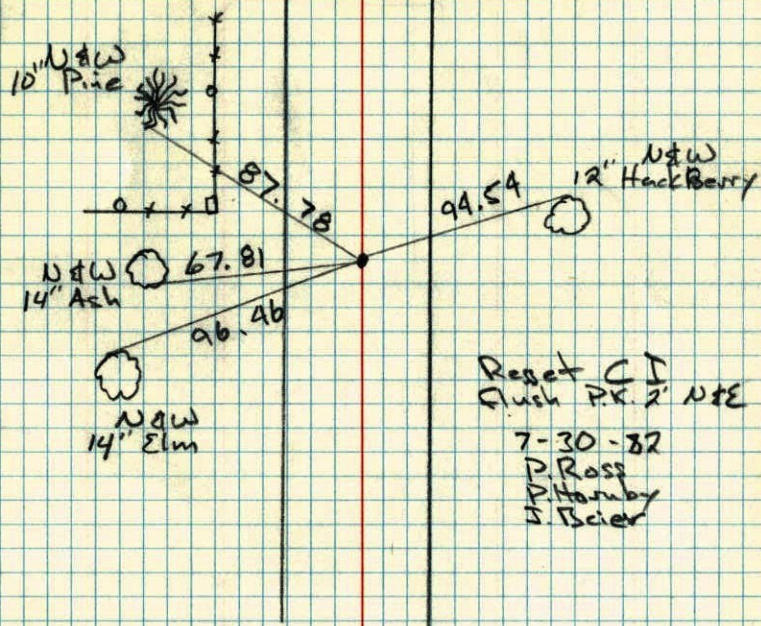 N&W
10" Pine
87.78
N&W
12" HackBerry
94.54
67.81
N&W
14" Ash
96.46
N&W
14" Elm
Reset C I
flush P.K. 2' N&E
7-30-82
P. Ross
P. Hornby
J. Beier